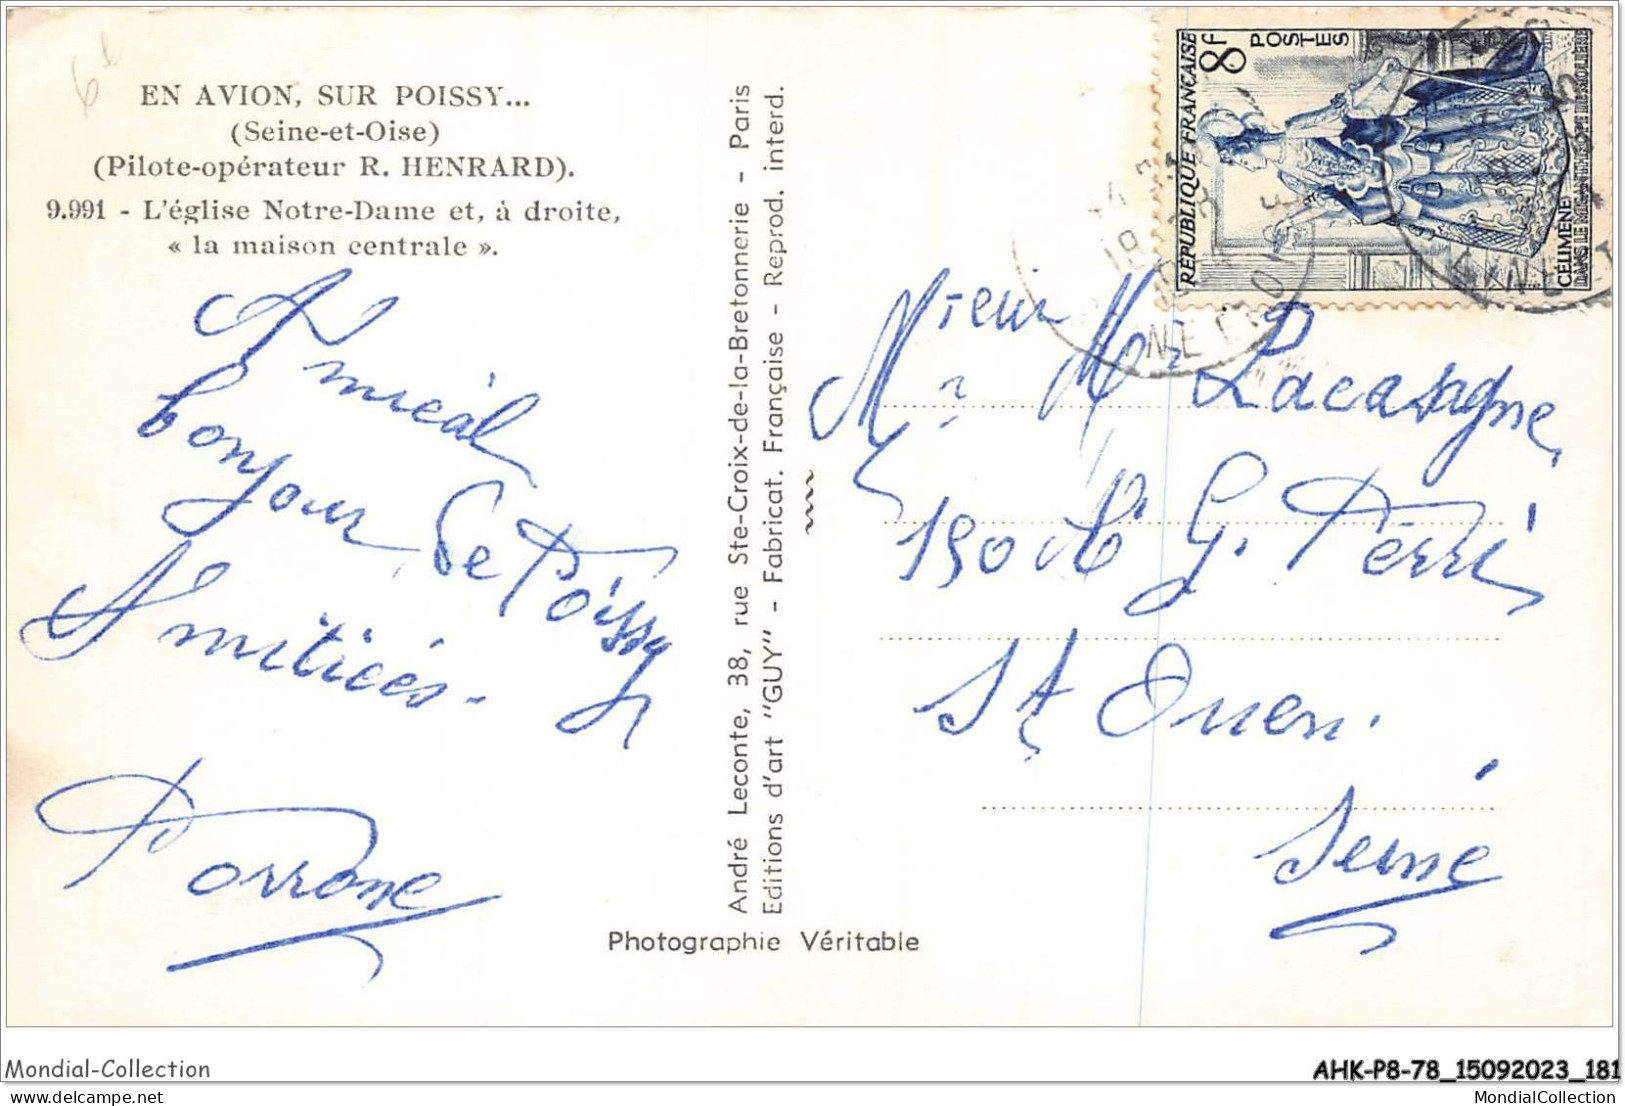 EN AVION, SUR POISSY...
(Seine-et-Oise)
(Pilote-opérateur R. HENRARD).
9.991 - L'église Notre-Dame et, à droite,
« la maison centrale ».
Amical
bonjour de Poissy
Amitiées.
Porrone
André Leconte, 38, rue Ste-Croix-de-la-Bretonnerie - Paris
Editions d'art "GUY" - Fabricat. Française - Reprod. interd.
Photographie Véritable
RÉPUBLIQUE FRANÇAISE
8F
POSTES
CÉLIMÈNE
DANS LE MISANTHROPE DE MOLIÈRE
Lacasagne
G. Perri
St Ouen.
Seine
Mondial-Collection
AHK-P8-78_15092023_181
MondialCollection